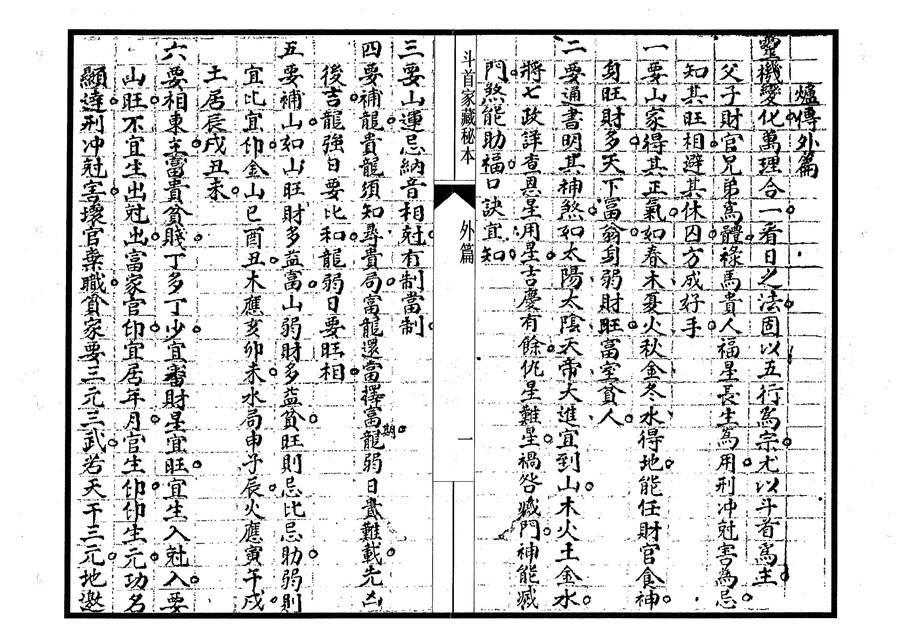 爐傳外篇
靈機變化萬理合一看日之法固以五行爲宗尤以斗首爲主
父子財官兄弟爲體祿馬貴人福星長生爲用刑冲尅害爲忌
知其旺相避其休囚方成好手
一要山家得其正氣如春木夏火秋金冬水得地能任財官食神
身旺財多天下富翁身弱財旺富室貧人
二要通書明其神煞如太陽太陰天帝大進宜到山木火土金水
將七政詳查恩星用星吉慶有餘仇星難星禍咎臧門神能臧
門煞能助福口訣宜知
斗首家藏秘本
外篇
一
三要山運忌納音相尅有制當制
四要補龍貴龍須知尋貴局富龍還富擇富龍弱日期難載先凶
後吉龍強日要比和龍弱日要旺相
五要補山如山旺財多益富山弱財多益貧旺則忌比忌助弱則
宜比宜仰金山巳酉丑木應亥卯未水局申子辰火應寅午戌
土居辰戌丑未
六要相東主富貴貧賤丁多丁少宜番財星宜旺宜生入尅入要
山旺不宜生出尅出富家官印宜居年月官生仰仰生元功名
顯達刑冲尅害壞官棄職貧家要三元三武若天干三元地邀